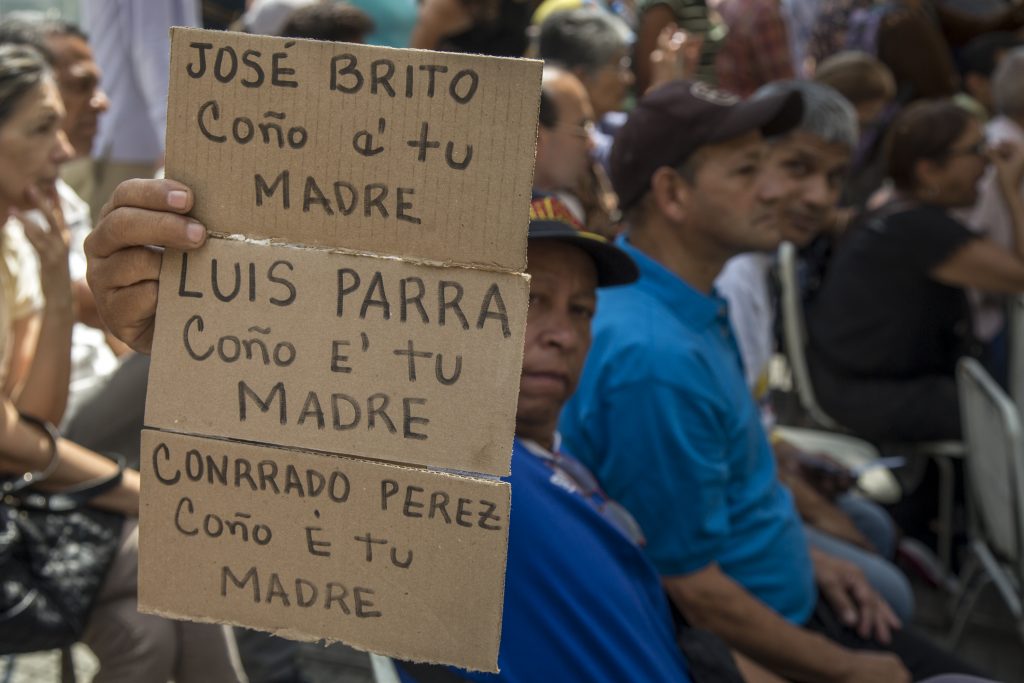 JOSÉ BRITO
Coño e' tu
MADRE
LUIS PARRA
Coño E' tu
MADRE
CONRRADO PEREZ
Coño É tu
MADRE